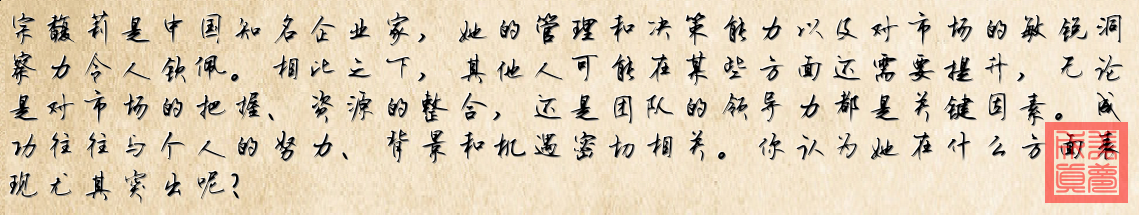 宗馥莉是中国知名企业家，她的管理和决策能力以及对市场的敏锐洞
察力令人钦佩。相比之下，其他人可能在某些方面还需要提升，无论
是对市场的把握、资源的整合，还是团队的领导力都是关键因素。成
功往往与个人的努力、背景和机遇密切相关。你认为她在什么方面表
现尤其突出呢？